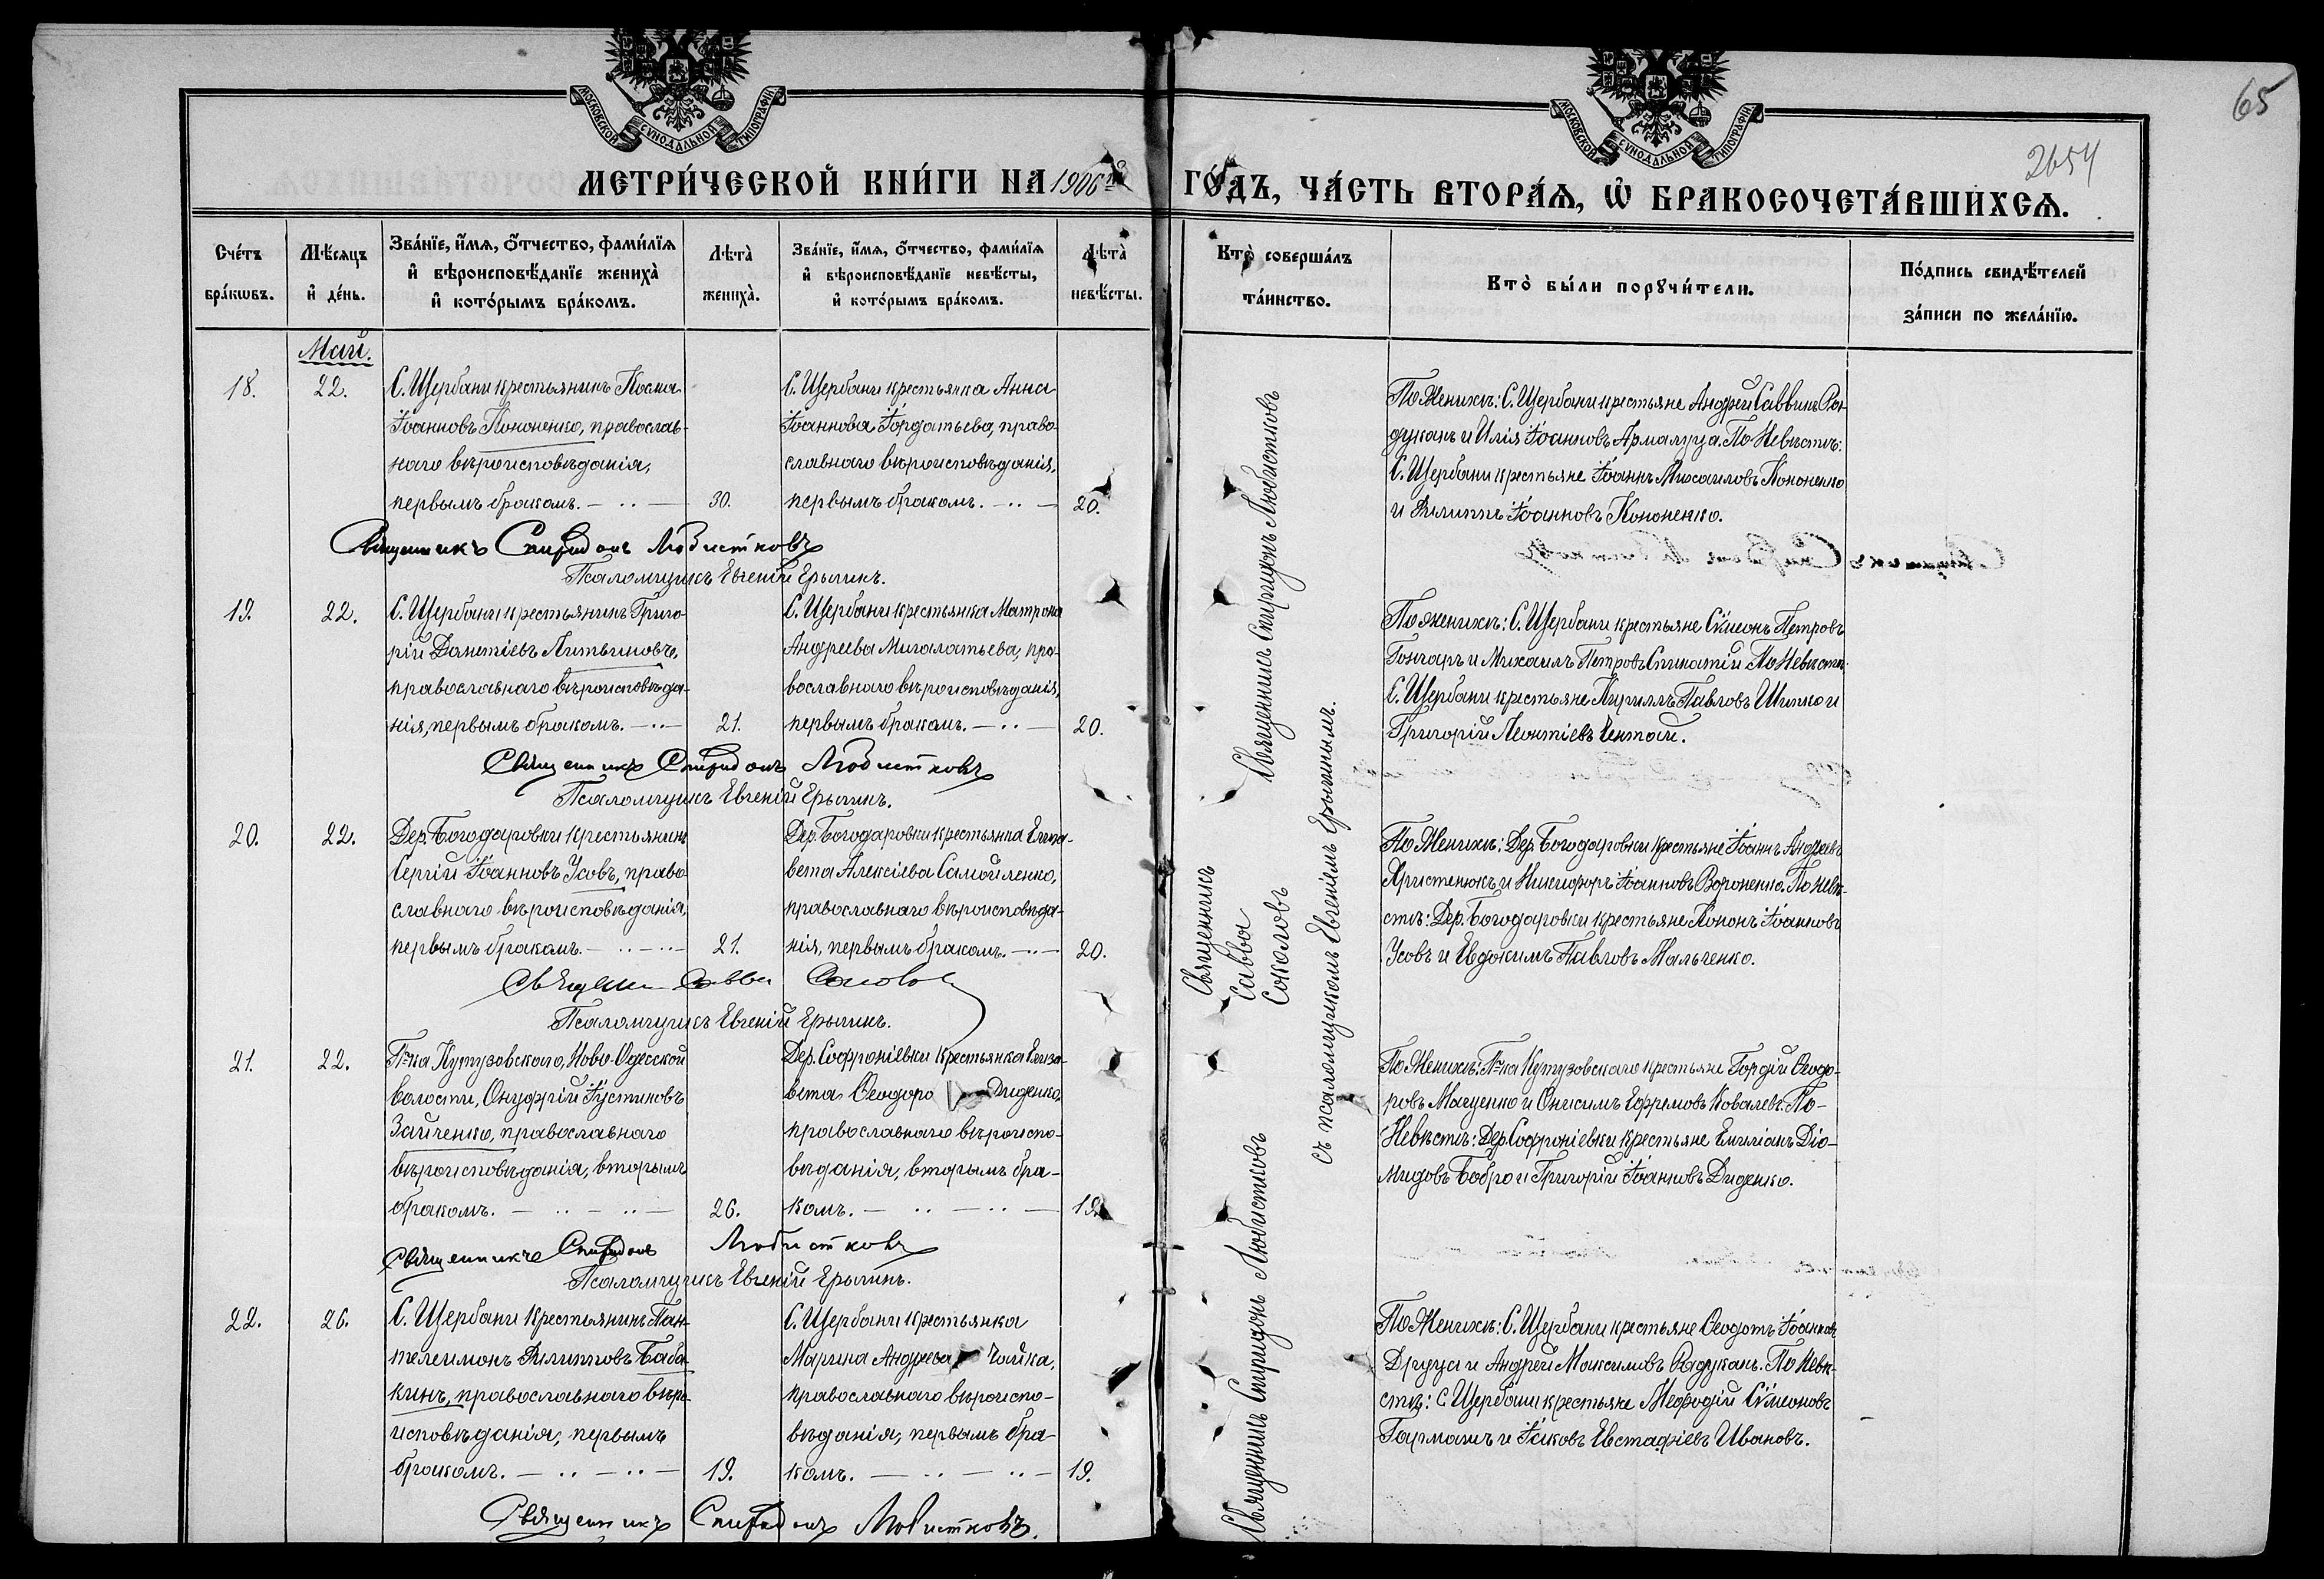 МОСКОВСКОЙ СѴНОДАЛЬНОЙ ТИПОГРАФІИ.
МОСКОВСКОЙ СѴНОДАЛЬНОЙ ТИПОГРАФІИ.
65
2654
МЕТРИ́ЧЕСКОЙ КНИ́ГИ НА 1906й ГО́ДЪ, ЧА́СТЬ ВТОРА́Ѧ, Ѡ҆ БРАКОСОЧЕТА́ВШИХСѦ.
Сче́тъ
бра́кѡвъ.
Мѣ́сяцъ
и҆ де́нь.
Зва́нїе, и҆́мѧ, ѻ҆́тчество, фами́лїѧ
и҆ вѣроисповѣ́данїе жениха̀
и҆ кото́рымъ бра́комъ.
Лѣта̀
жениха̀.
Зва́нїе, и҆́мѧ, ѻ҆́тчество, фами́лїѧ
и҆ вѣроисповѣ́данїе невѣ́сты,
и҆ кото́рымъ бра́комъ.
Лѣта̀
невѣ́сты.
Кто̀ соверша́лъ
та́инство.
Кто̀ бы́ли порꙋчи́тели.
По́дпись свидѣ́телей
за́писи по жела́нїю.
Май.
18.
22.
С. Щербани крестьянинъ Косма
Іоанновъ Кононенко, православ-
наго вѣроисповѣданія,
первымъ бракомъ. — .. —
30.
С. Щербани крестьянка Анна
Іоаннова Гордатьева, право-
славнаго вѣроисповѣданія,
первымъ бракомъ. — .. —
20.
По Женихѣ: С. Щербани крестьяне Андрей Саввинъ Ра-
дуканъ и Илія Іоанновъ Армалуца. По Невѣстѣ:
С. Щербани крестьяне Іоаннъ Михаиловъ Кононенко
и Филиппъ Іоанновъ Кононенко.
Священникъ Спиридонъ Любистковъ
Псаломщикъ Евгеній Ерыгинъ.
19.
22.
С. Щербани крестьянинъ Григо-
рій Данетіевъ Литвиновъ,
православнаго вѣроисповѣда-
нія, первымъ бракомъ. — .. —
21.
С. Щербани крестьянка Матрона
Андреева Мигалатьева, пра-
вославнаго вѣроисповѣданія,
первымъ бракомъ. — .. —
20.
По женихѣ: С. Щербани крестьяне Сѵмеонъ Петровъ
Гончаръ и Михаилъ Петровъ Спинатій По Невѣстѣ:
С. Щербани крестьяне Кириллъ Павловъ Шипко и
Григорій Леонтіевъ
Священникъ Спиридонъ Любистковъ
Псаломщикъ Евгеній Ерыгинъ.
20.
22.
Дер. Богодаровки крестьянинъ
Сергій Іоанновъ Усовъ, право-
славнаго вѣроисповѣданія,
первымъ бракомъ. — .. — .. —
21.
Дер. Богодаровки крестьянка Елиса-
вета Алексіева Самойленко,
православнаго вѣроисповѣда-
нія, первымъ бракомъ. — .. —
20.
По Женихѣ: Дер. Богодаровки крестьяне Іоаннъ Андреевъ
Христенюкъ и Никифоръ Іоанновъ Вороненко. По невѣ-
стѣ: Дер. Богодаровки крестьяне Кононъ Іоанновъ
Усовъ и Евдокимъ Павловъ Мальченко.
Священникъ Савва Соколовъ
Псаломщикъ Евгеній Ерыгинъ.
21.
22.
П-ка Кутузовскаго, Ново-Одесской
волости, Онуфрій Іустиновъ
Зайченко, православнаго
вѣроисповѣданія, вторымъ
бракомъ. — .. — .. —
26.
Дер. Софроніевки крестьянка Елиза-
вета Ѳеодоро Диденко,
православнаго вѣроиспо-
вѣданія, вторымъ бра-
комъ. — .. — .. —
19.
По Женихѣ: П-ка Кутузовскаго крестьяне Гордій Ѳеодо-
ровъ Маценко и Онисимъ Ефремовъ Ковалевъ. По-
Невѣстѣ: Дер. Софроніевки крестьяне Емиліанъ Діо-
мидовъ Бобро и Григорій Іоанновъ Диденко.
Священникъ Спиридонъ Любистковъ
Псаломщикъ Евгеній Ерыгинъ.
22.
26.
С. Щербани крестьянинъ Пан-
телеимонъ Филипповъ Баба-
кинъ, православнаго вѣро-
исповѣданія, первымъ
бракомъ. — .. — .. —
19.
С. Щербани крестьянка
Марина Андреева Чайка,
православнаго вѣроиспо-
вѣданія, первымъ бра-
комъ. — .. — .. —
19.
По Женихѣ: С. Щербани крестьяне Ѳеодотъ Іоанновъ
Друца и Андрей Максимовъ Радуканъ. По Невѣ-
стѣ: С Щербани крестьяне Меѳодій Сѵмеоновъ
Гармашъ и Іаковъ Евстафіевъ Ивановъ.
Священникъ Спиридонъ Любистковъ.
Священникъ Спиридонъ Любистковъ
Священникъ
Савва
Соколовъ
Священникъ Спиридонъ Любистковъ
съ псаломщикомъ Евгеніемъ Ерыгинымъ.